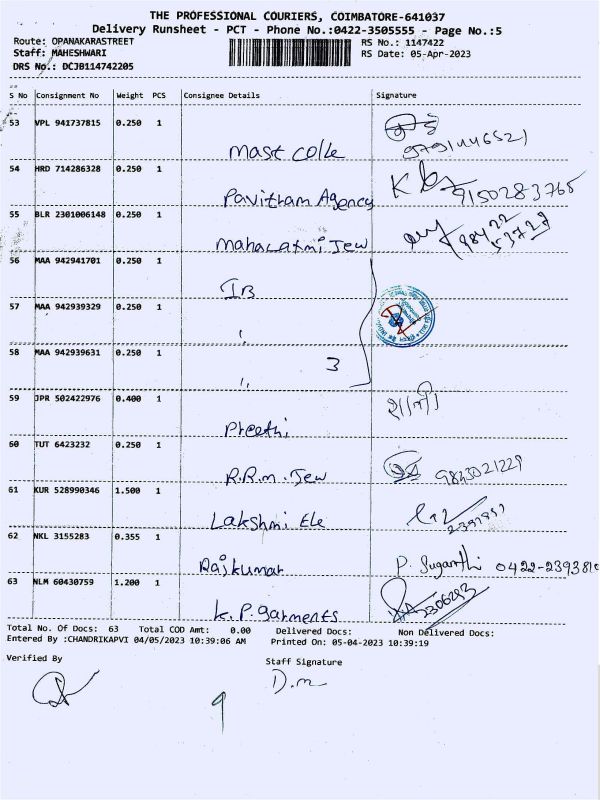 THE PROFESSIONAL COURIERS, COIMBATORE-641037
Delivery Runsheet - PCT - Phone No.:0422-3505555 - Page No.:5
Route: OPANAKARASTREET RS No.: 1147422
Staff: MAHESHWARI RS Date: 05-Apr-2023
DRS No.: DCJB114742205
S No Consignment No Weight PCS Consignee Details Signature
53 VPL 941737815 0.250 1
Mast Colle 9791446521
54 HRD 714286328 0.250 1
Pavithram Agency 9150283765
55 BLR 2301006148 0.250 1
Mahalaxmi Jew 98422 53727
56 MAA 942941701 0.250 1
IB
57 MAA 942939329 0.250 1
58 MAA 942939631 0.250 1
3
59 JPR 502422976 0.400 1
Preethi
60 TUT 6423232 0.250 1
R.R.m. Jew 9843021229
61 KUR 528990346 1.500 1
Lakshmi Ele
62 NKL 3155283 0.355 1
Rajkumar P. Suganthi 0422-2393810
63 NLM 60430759 1.200 1
K.P. garments 2306293
Total No. Of Docs: 63 Total COD Amt: 0.00 Delivered Docs: Non Delivered Docs:
Entered By :CHANDRIKAPVI 04/05/2023 10:39:06 AM Printed On: 05-04-2023 10:39:19
Verified By Staff Signature
D.m